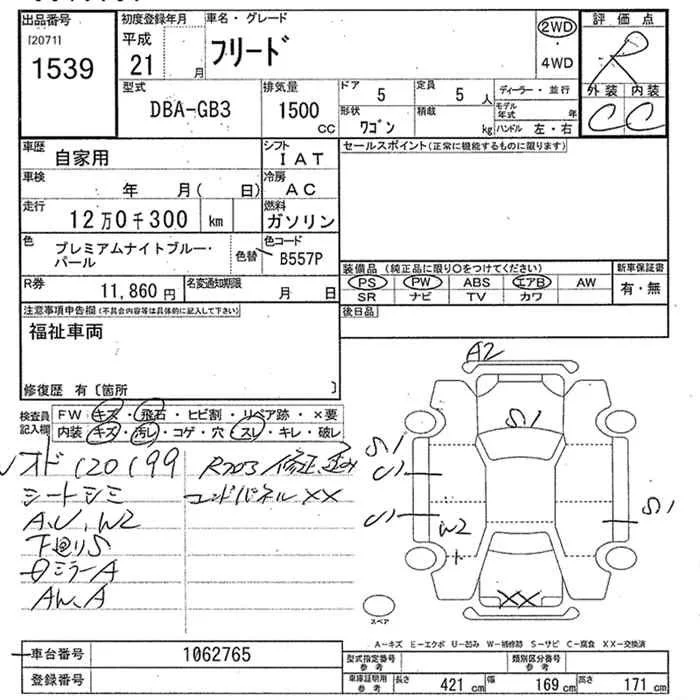 出品番号
[2071]
1539
初度登録年月
平成
21 月
車名・グレード
フリード
2WD
・
4WD
評価点
R
外装 内装
C C
型式
DBA-GB3
排気量
1500 cc
ドア
5
定員
5 人
形状
ワゴン
積載
kg
ディーラー・並行
モデル年式 年
ハンドル 左・右
車歴
自家用
シフト
IAT
セールスポイント(正常に機能するものに限ります)
車検
年 月( 日)
冷房
AC
走行
12万0千300 km
燃料
ガソリン
色
プレミアムナイトブルー・
パール
色替
色コード
B557P
R券
11,860 円
名変通知期限
月 日
装備品(純正品に限り○をつけてください)
PS PW ABS エアB AW
SR ナビ TV カワ
新車保証書
有・無
注意事項申告欄(不具合内容等は具体的に記入して下さい)
福祉車両
後日品
修復歴 有〔箇所 〕
検査員
記入欄
FW キズ・飛石・ヒビ割・リペア跡・×要
内装 キズ・汚レ・コゲ・穴・スレ・キレ・破レ
シートシミ
A,U,W2
下回りS
ミラーA
AW,A
××
A2
S1
S1
U
U
W2
+
S1
XX
スペア
A-キズ E-エクボ U-凹み W-補修跡 S-サビ C-腐食 XX-交換済
車台番号
1062765
登録番号
型式指定番号
参考
類別区分番号
参考
車庫証明用
参考
長さ 421 cm
幅 169 cm
高さ 171 cm